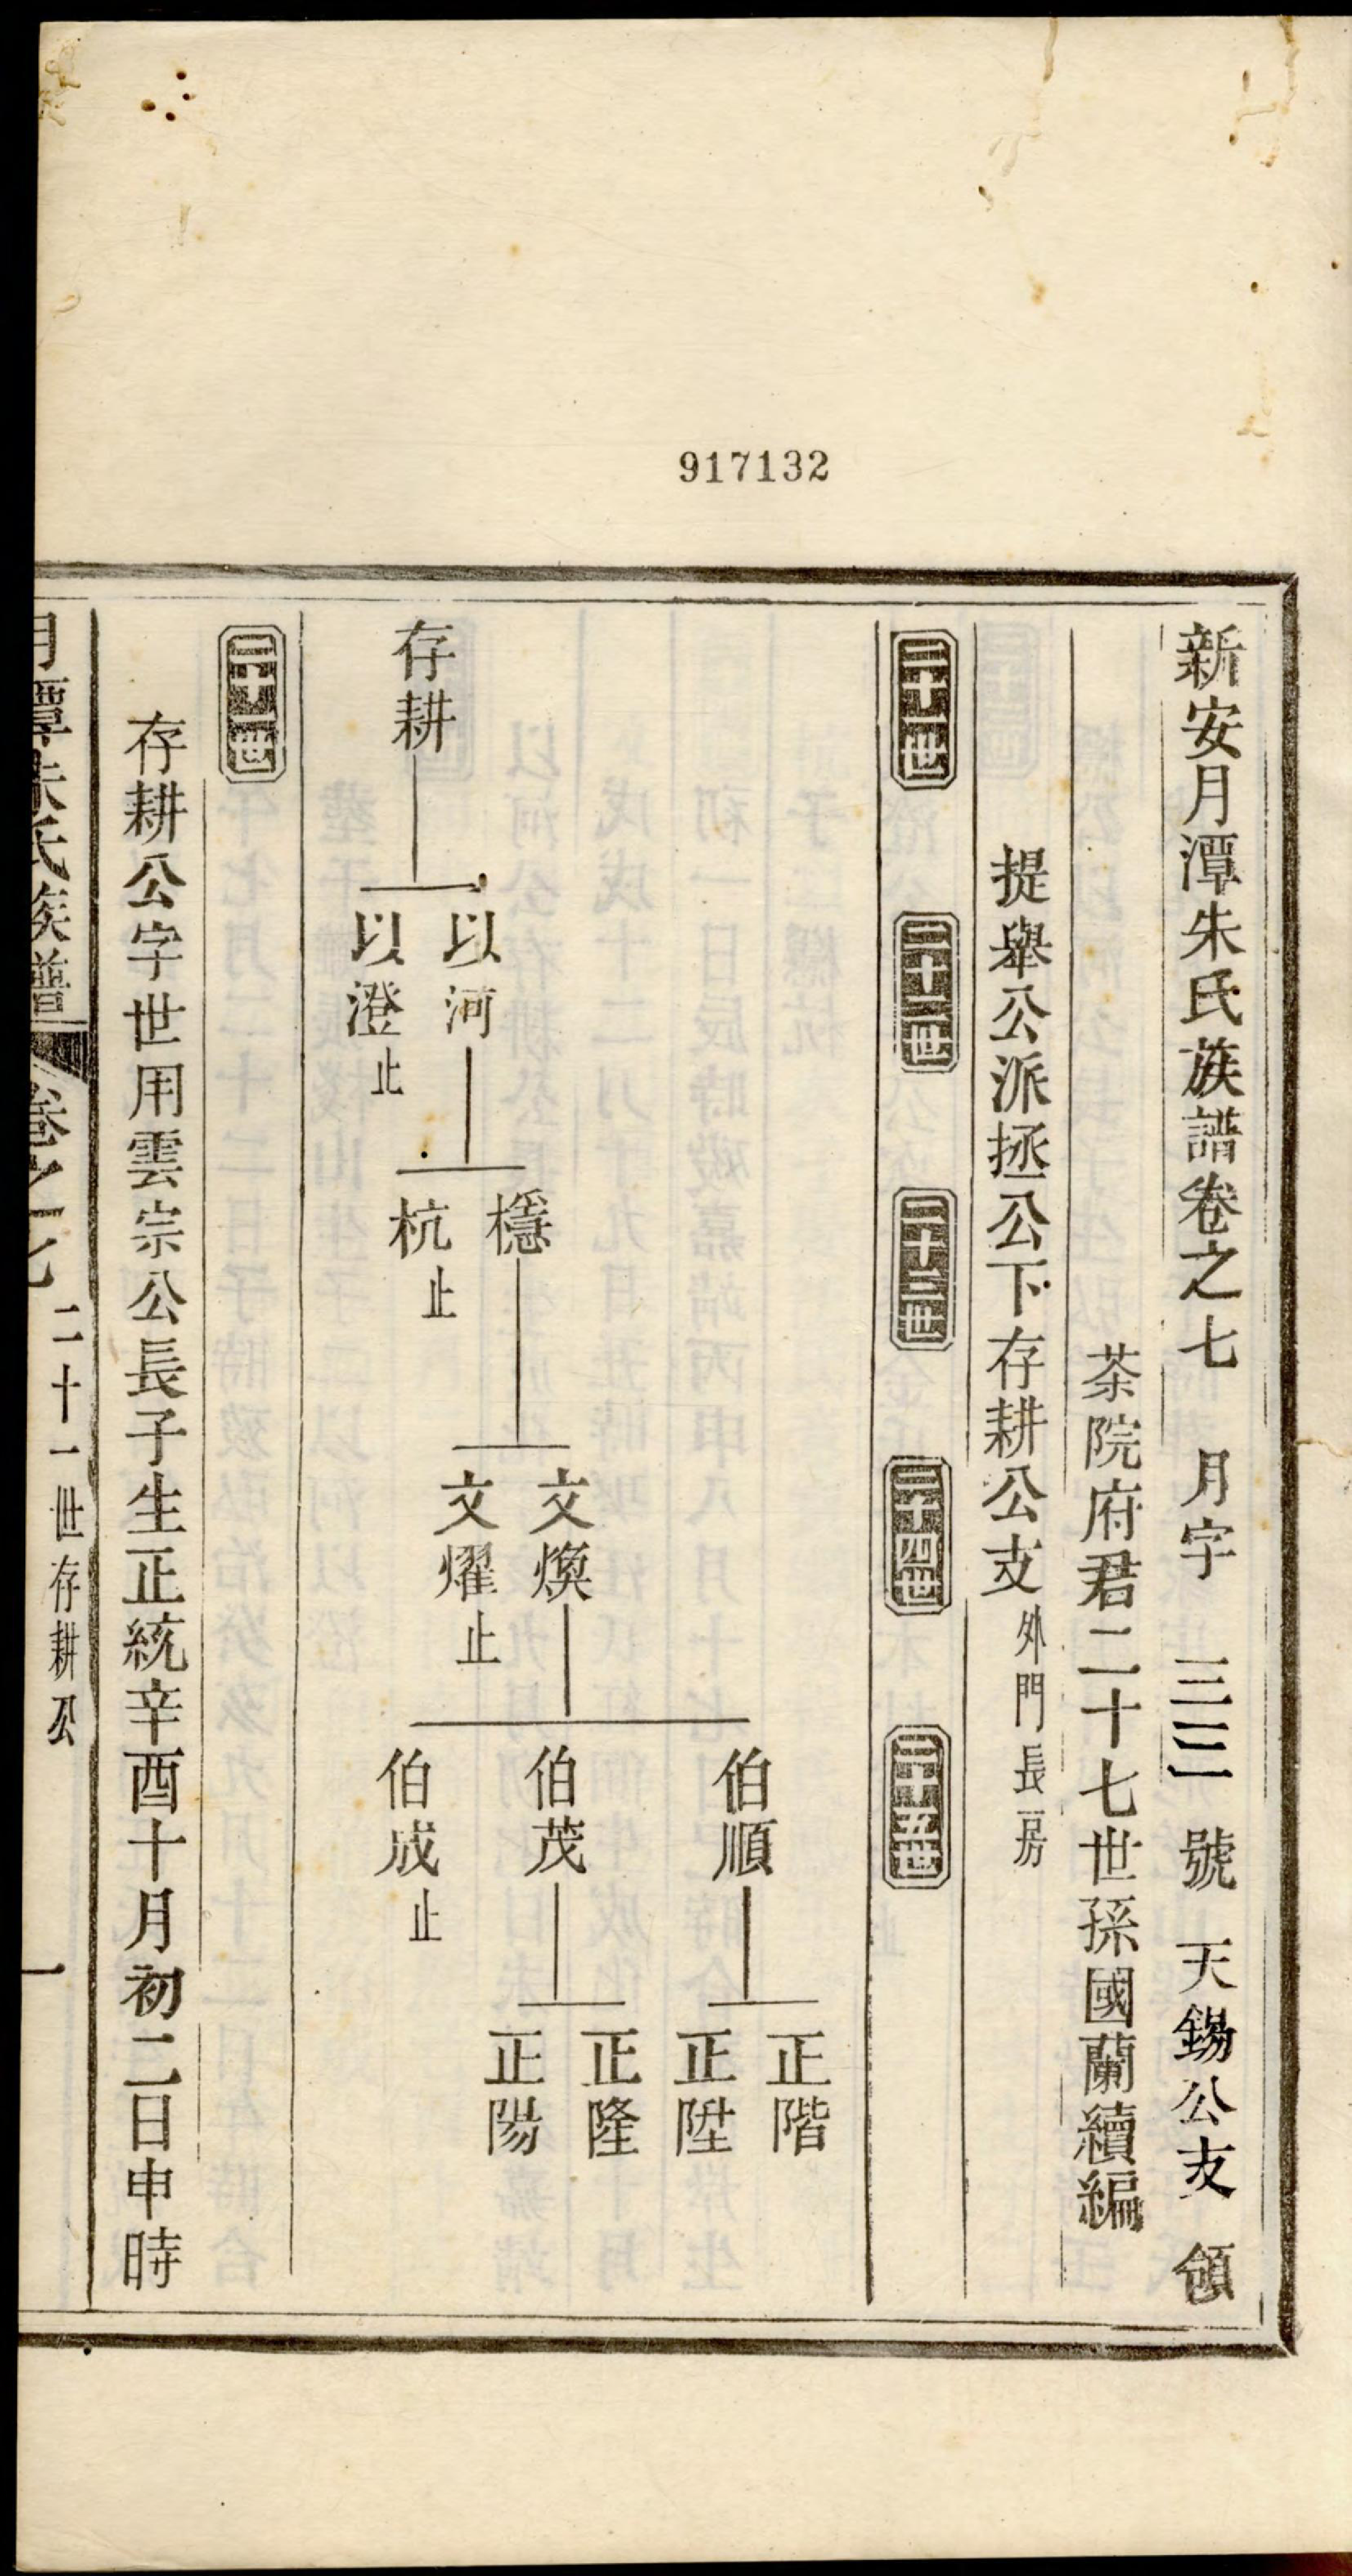 917132
新安月潭朱氏族譜卷之七 月字 三 號 天錫公支 領
茶院府君二十七世孫國蘭續編
提舉公派拯公下存耕公支 外門長房
二十一世 二十二世 二十三世 二十四世 二十五世
存耕
以河
以澄 止
檼
杭 止
文煥
文燿 止
伯順
伯茂
伯成 止
正階
正陞
正隆
正陽
二十一世
存耕公字世用雲宗公長子生正統辛酉十月初二日申時
月潭朱氏族譜 卷之七 二十一世存耕公 一